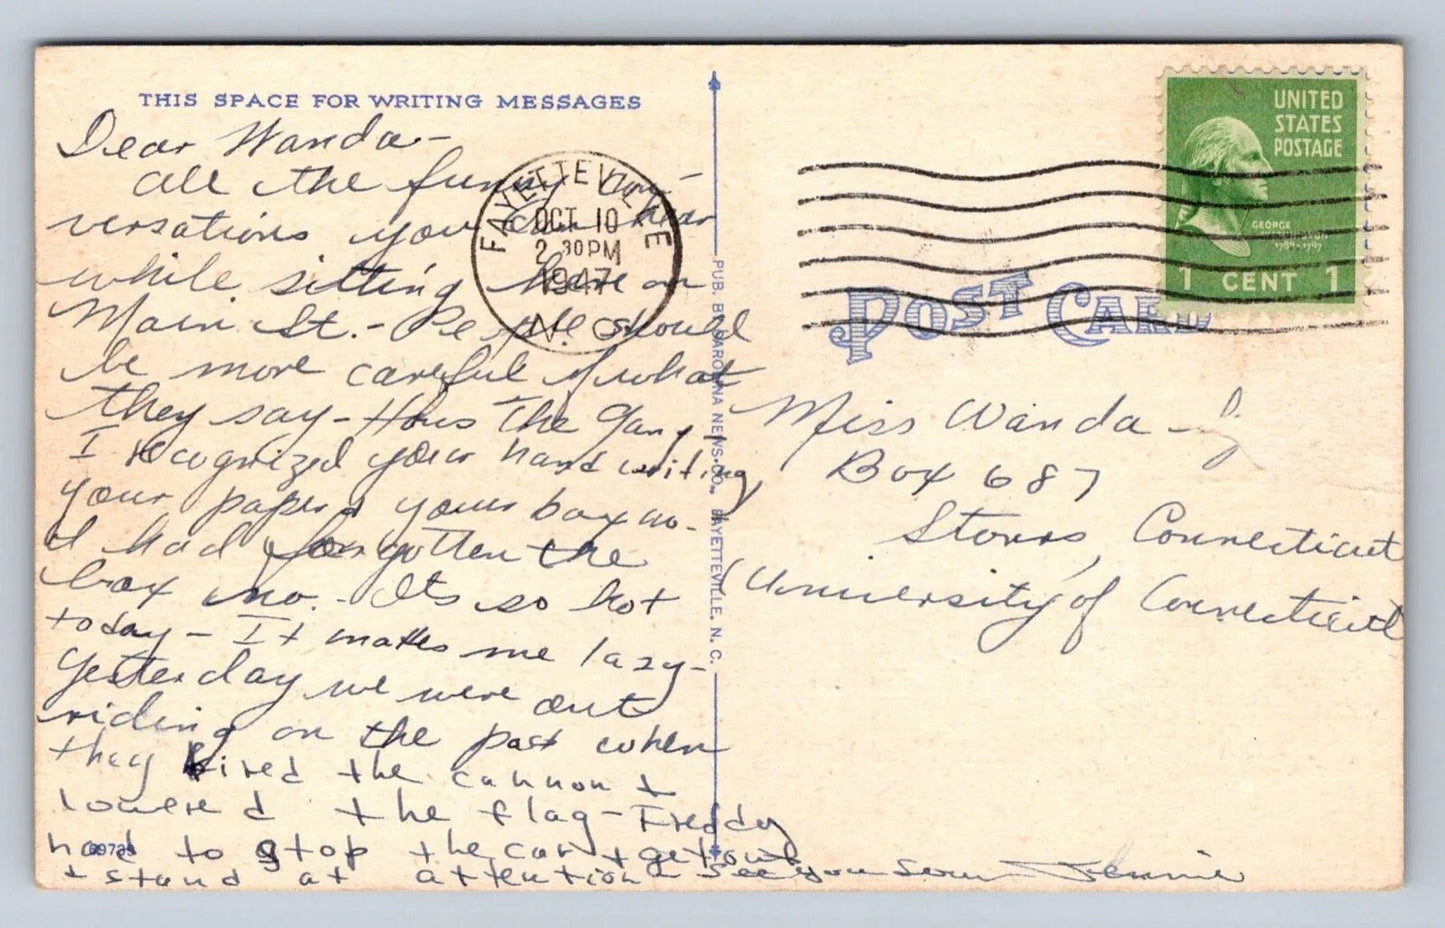 THIS SPACE FOR WRITING MESSAGES
Dear Wanda -
all the funny con-
versations you can hear
while sitting here on
Main St. - People should
be more careful of what
they say - Hows the Gang,
I recognized your hand writing
your paper & your box no.
I had forgotten the
box no. - Its so hot
today - It makes me lazy -
Yesterday we were out
riding on the post when
they fired the cannon &
lowered the flag - Freddy
had to stop the car & get out
& stand at attention - See you soon - Jennie
69725
FAYETTEVILLE
OCT 10
2 30 PM
1947
N. C.
PUB. BY CAROLINA NEWS CO., FAYETTEVILLE, N. C.
UNITED
STATES
POSTAGE
GEORGE
WASHINGTON
1789-1797
1 CENT 1
POST CARD
Miss Wanda
Box 687
Storrs, Connecticut
(University of Connecticut